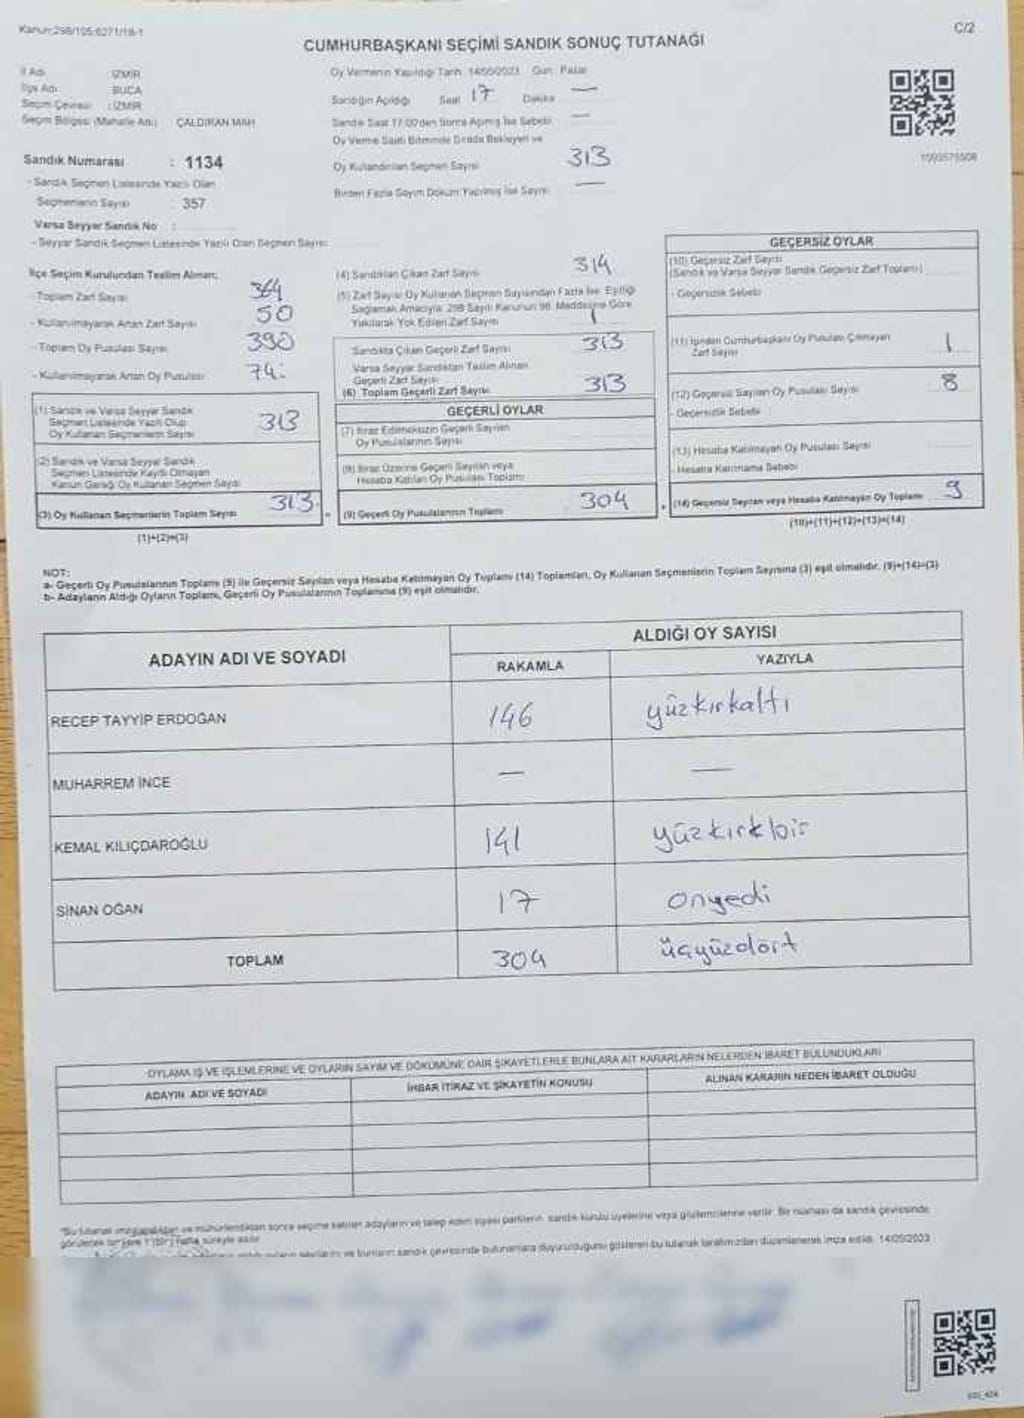 Kanun:298/105;6271/18-1
C/2
CUMHURBAŞKANI SEÇİMİ SANDIK SONUÇ TUTANAĞI
İl Adı İZMİR
İlçe Adı BUCA
Seçim Çevresi : İZMİR
Seçim Bölgesi (Mahalle Adı) ÇALDIRAN MAH
Sandık Numarası : 1134
- Sandık Seçmen Listesinde Yazılı Olan
Seçmenlerin Sayısı : 357
Varsa Seyyar Sandık No :
- Seyyar Sandık Seçmen Listesinde Yazılı Olan Seçmen Sayısı
Oy Vermenin Yapıldığı Tarih 14/05/2023 Gün Pazar
Sandığın Açıldığı Saat 17 Dakika —
Sandık Saat 17:00'den Sonra Açılmış İse Sebebi: —
Oy Verme Saati Bitiminde Sırada Bekleyen ve
Oy Kullandırılan Seçmen Sayısı 313
Birden Fazla Sayım Döküm Yapılmış İse Sayısı —
İlçe Seçim Kurulundan Teslim Alınan;
- Toplam Zarf Sayısı 364
- Kullanılmayarak Artan Zarf Sayısı 50
- Toplam Oy Pusulası Sayısı 390
- Kullanılmayarak Artan Oy Pusulası 74
(1) Sandık ve Varsa Seyyar Sandık
Seçmen Listesinde Yazılı Olup
Oy Kullanan Seçmenlerin Sayısı 313
(2) Sandık ve Varsa Seyyar Sandık
Seçmen Listesinde Kaydı Olmayan
Kanun Gereği Oy Kullanan Seçmen Sayısı
(3) Oy Kullanan Seçmenlerin Toplam Sayısı 313
(1)+(2)=(3)
(4) Sandıktan Çıkan Zarf Sayısı 314
(5) Zarf Sayısı Oy Kullanan Seçmen Sayısından Fazla İse, Eşitliği
Sağlamak Amacıyla, 298 Sayılı Kanunun 98. Maddesine Göre
Yakılarak Yok Edilen Zarf Sayısı 1
Sandıkta Çıkan Geçerli Zarf Sayısı 313
Varsa Seyyar Sandıktan Teslim Alınan
Geçerli Zarf Sayısı
(6) Toplam Geçerli Zarf Sayısı 313
GEÇERLİ OYLAR
(7) İtiraz Edilmeksizin Geçerli Sayılan
Oy Pusulalarının Sayısı
(8) İtiraz Üzerine Geçerli Sayılan veya
Hesaba Katılan Oy Pusulası Toplamı
(9) Geçerli Oy Pusulalarının Toplamı 304
GEÇERSİZ OYLAR
(10) Geçersiz Zarf Sayısı
(Sandık ve Varsa Seyyar Sandık Geçersiz Zarf Toplamı)
- Geçersizlik Sebebi
(11) İçinden Cumhurbaşkanı Oy Pusulası Çıkmayan
Zarf Sayısı 1
(12) Geçersiz Sayılan Oy Pusulası Sayısı 8
- Geçersizlik Sebebi
(13) Hesaba Katılmayan Oy Pusulası Sayısı
- Hesaba Katılmama Sebebi
(14) Geçersiz Sayılan veya Hesaba Katılmayan Oy Toplamı 9
(10)+(11)+(12)+(13)=(14)
NOT:
a- Geçerli Oy Pusulalarının Toplamı (9) ile Geçersiz Sayılan veya Hesaba Katılmayan Oy Toplamı (14) Toplamları, Oy Kullanan Seçmenlerin Toplam Sayısına (3) eşit olmalıdır. (9)+(14)=(3)
b- Adayların Aldığı Oyların Toplamı, Geçerli Oy Pusulalarının Toplamına (9) eşit olmalıdır.
ADAYIN ADI VE SOYADI
ALDIĞI OY SAYISI
RAKAMLA YAZIYLA
RECEP TAYYİP ERDOĞAN 146 yüzkırkaltı
MUHARREM İNCE — —
KEMAL KILIÇDAROĞLU 141 yüzkırkbir
SİNAN OĞAN 17 onyedi
TOPLAM 304 üçyüzdört
OYLAMA İŞ VE İŞLEMLERİNE VE OYLARIN SAYIM VE DÖKÜMÜNE DAİR ŞİKAYETLERLE BUNLARA AİT KARARLARIN NELERDEN İBARET BULUNDUKLARI
ADAYIN ADI VE SOYADI İHBAR İTİRAZ VE ŞİKAYETİN KONUSU ALINAN KARARIN NEDEN İBARET OLDUĞU
*Bu tutanak imzalandıktan ve mühürlendikten sonra seçime katılan adayların ve talep eden siyasi partilerin sandık kurulu üyelerine veya gözlemcilerine verilir. Bir nüshası da sandık çevresinde
görülecek bir yere 1 (Bir) hafta süreyle asılır
ve bunların sandık çevresinde bulunanlara duyurulduğunu gösteren bu tutanak tarafımızdan düzenlenerek imza edildi. 14/05/2023